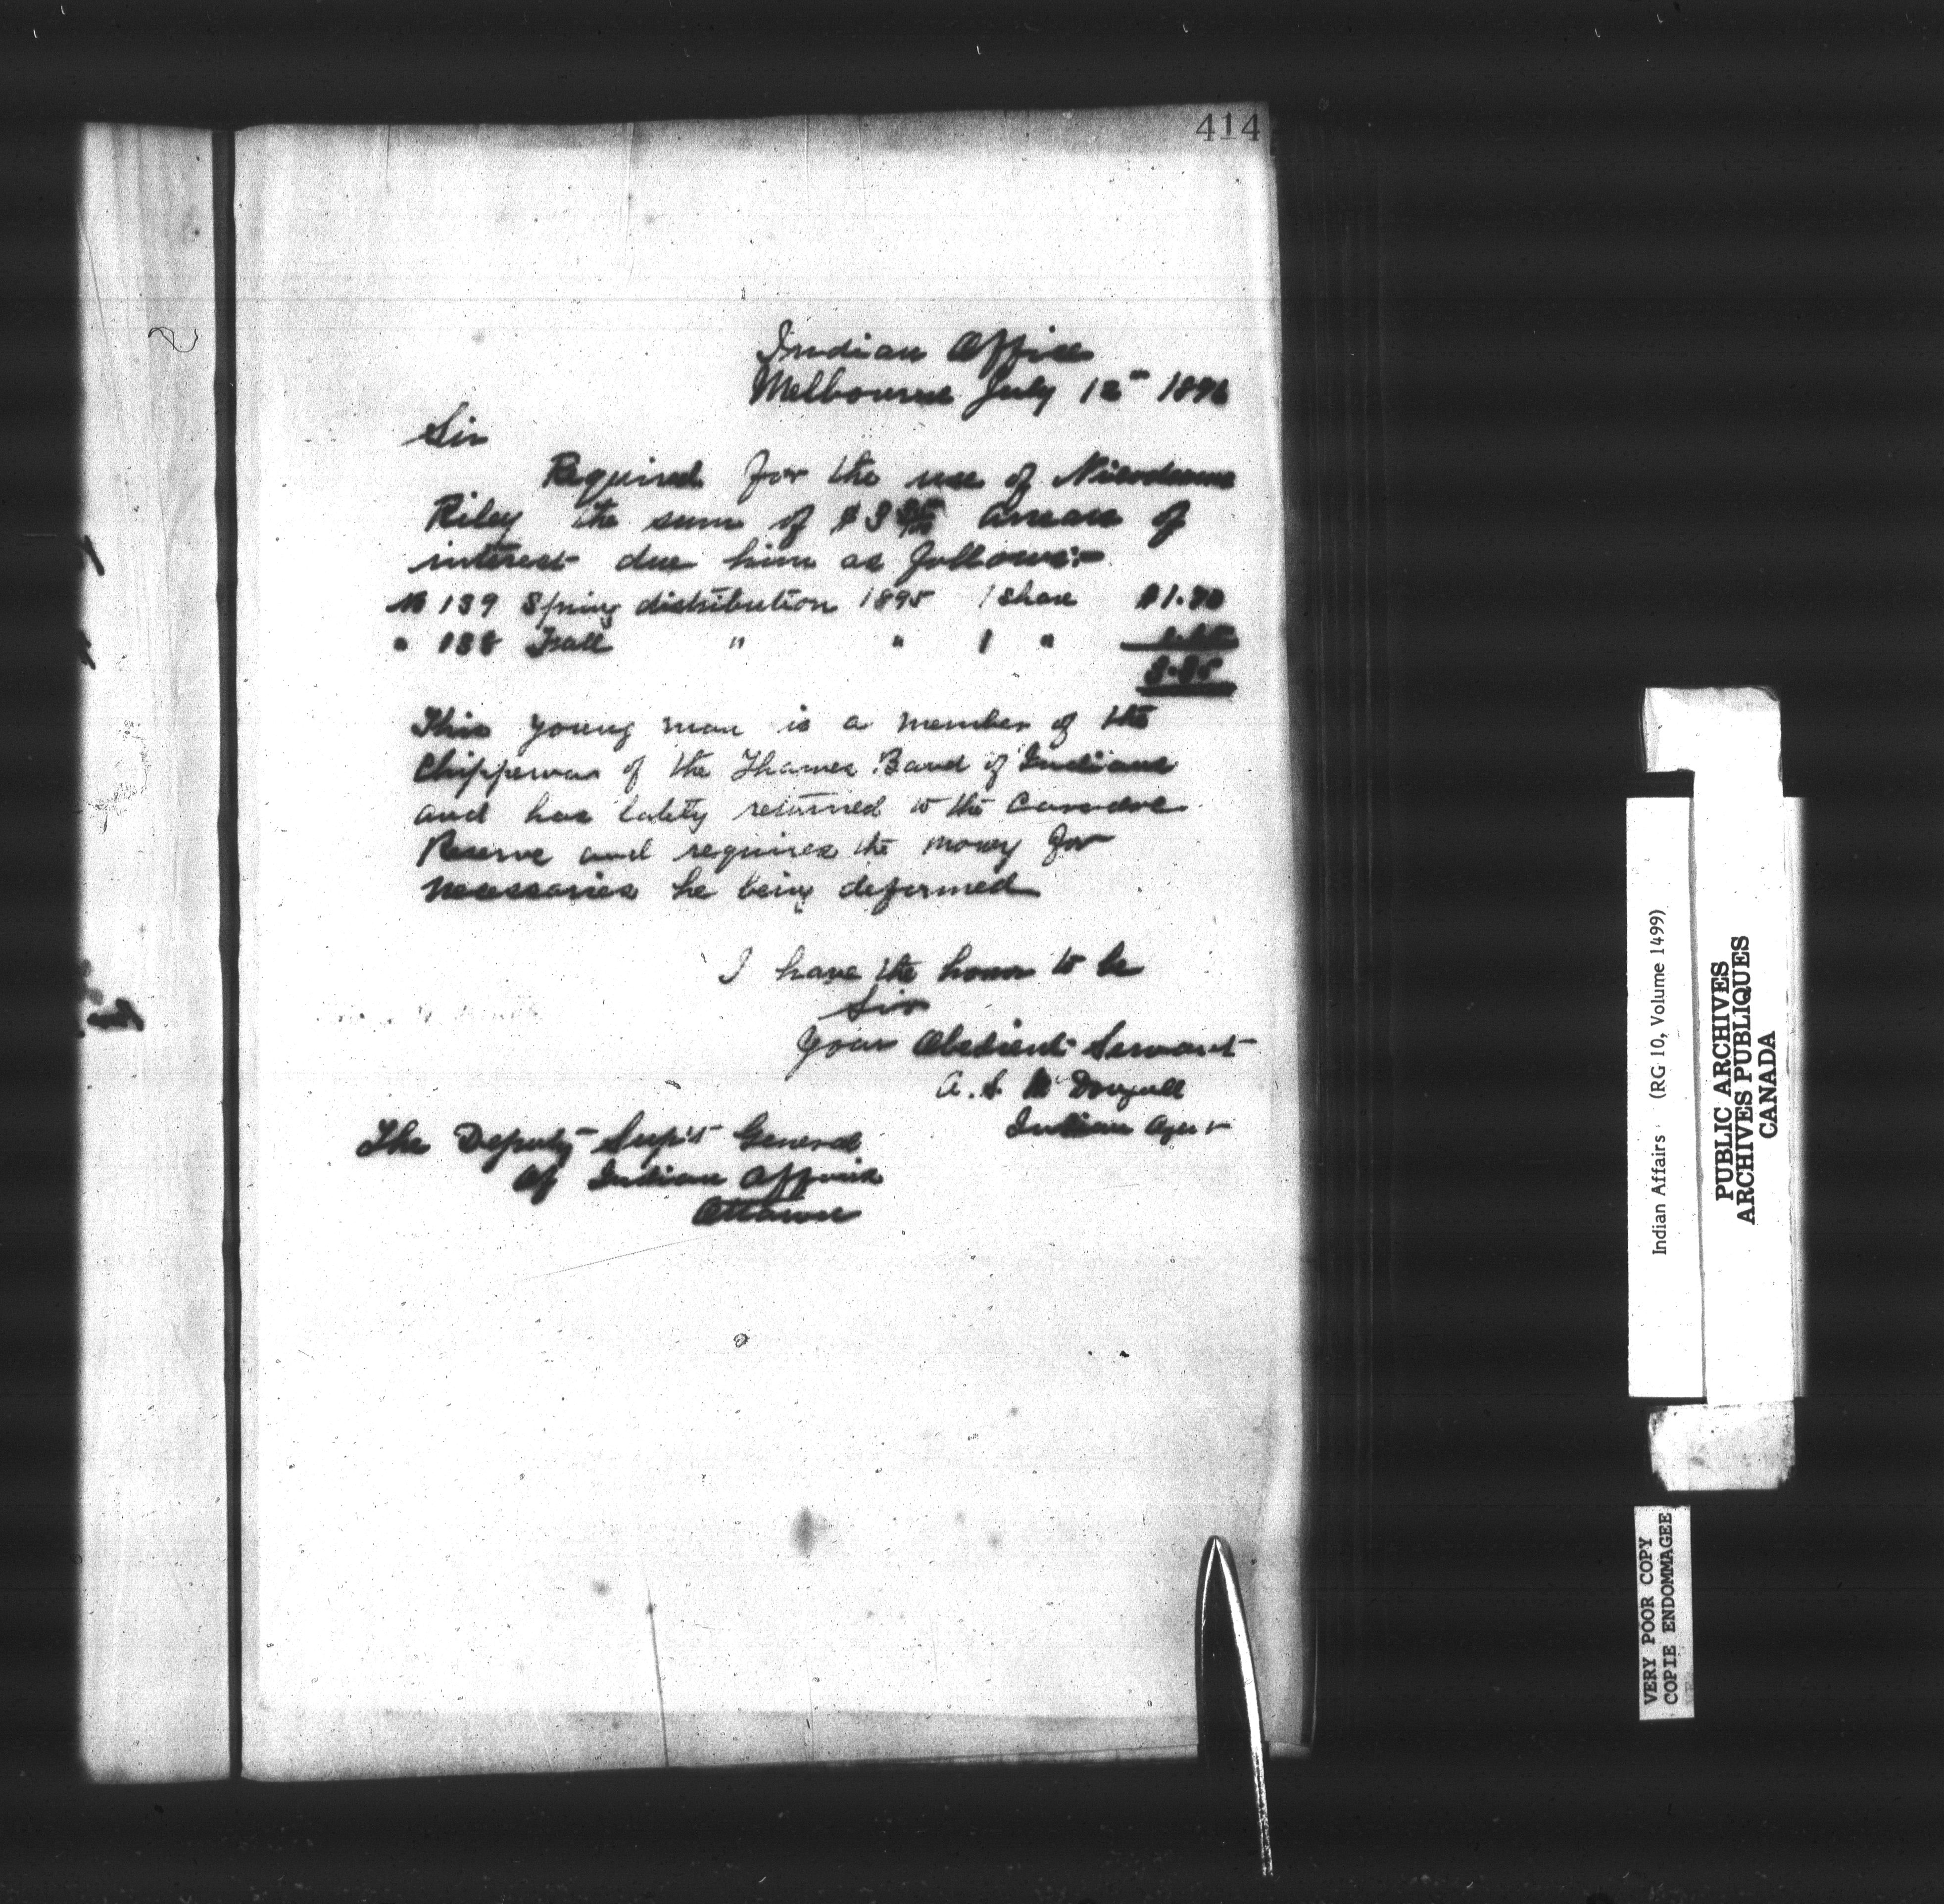 414
Indian Office
Melbourne July 12th 1896
Sir
Required for the use of Nicodemus
Riley the sum of $3 35/100 arrears of
interest due him as follows:-
No 139 Spring distribution 1895 1 Share $1.70
" 138 Fall " " 1 "
3.35
This young man is a member of the
Chippewas of the Thames Band of Indians
and has lately returned to the Caradoc
Reserve and requires the money for
necessaries he being deformed
I have the honor to be
Sir
Your Obedient Servant
A. S. McDougall
Indian Agent
The Deputy Supt General
Of Indian Affairs
Ottawa
Indian Affairs (RG 10, Volume 1499)
PUBLIC ARCHIVES
ARCHIVES PUBLIQUES
CANADA
VERY POOR COPY
COPIE ENDOMMAGEE